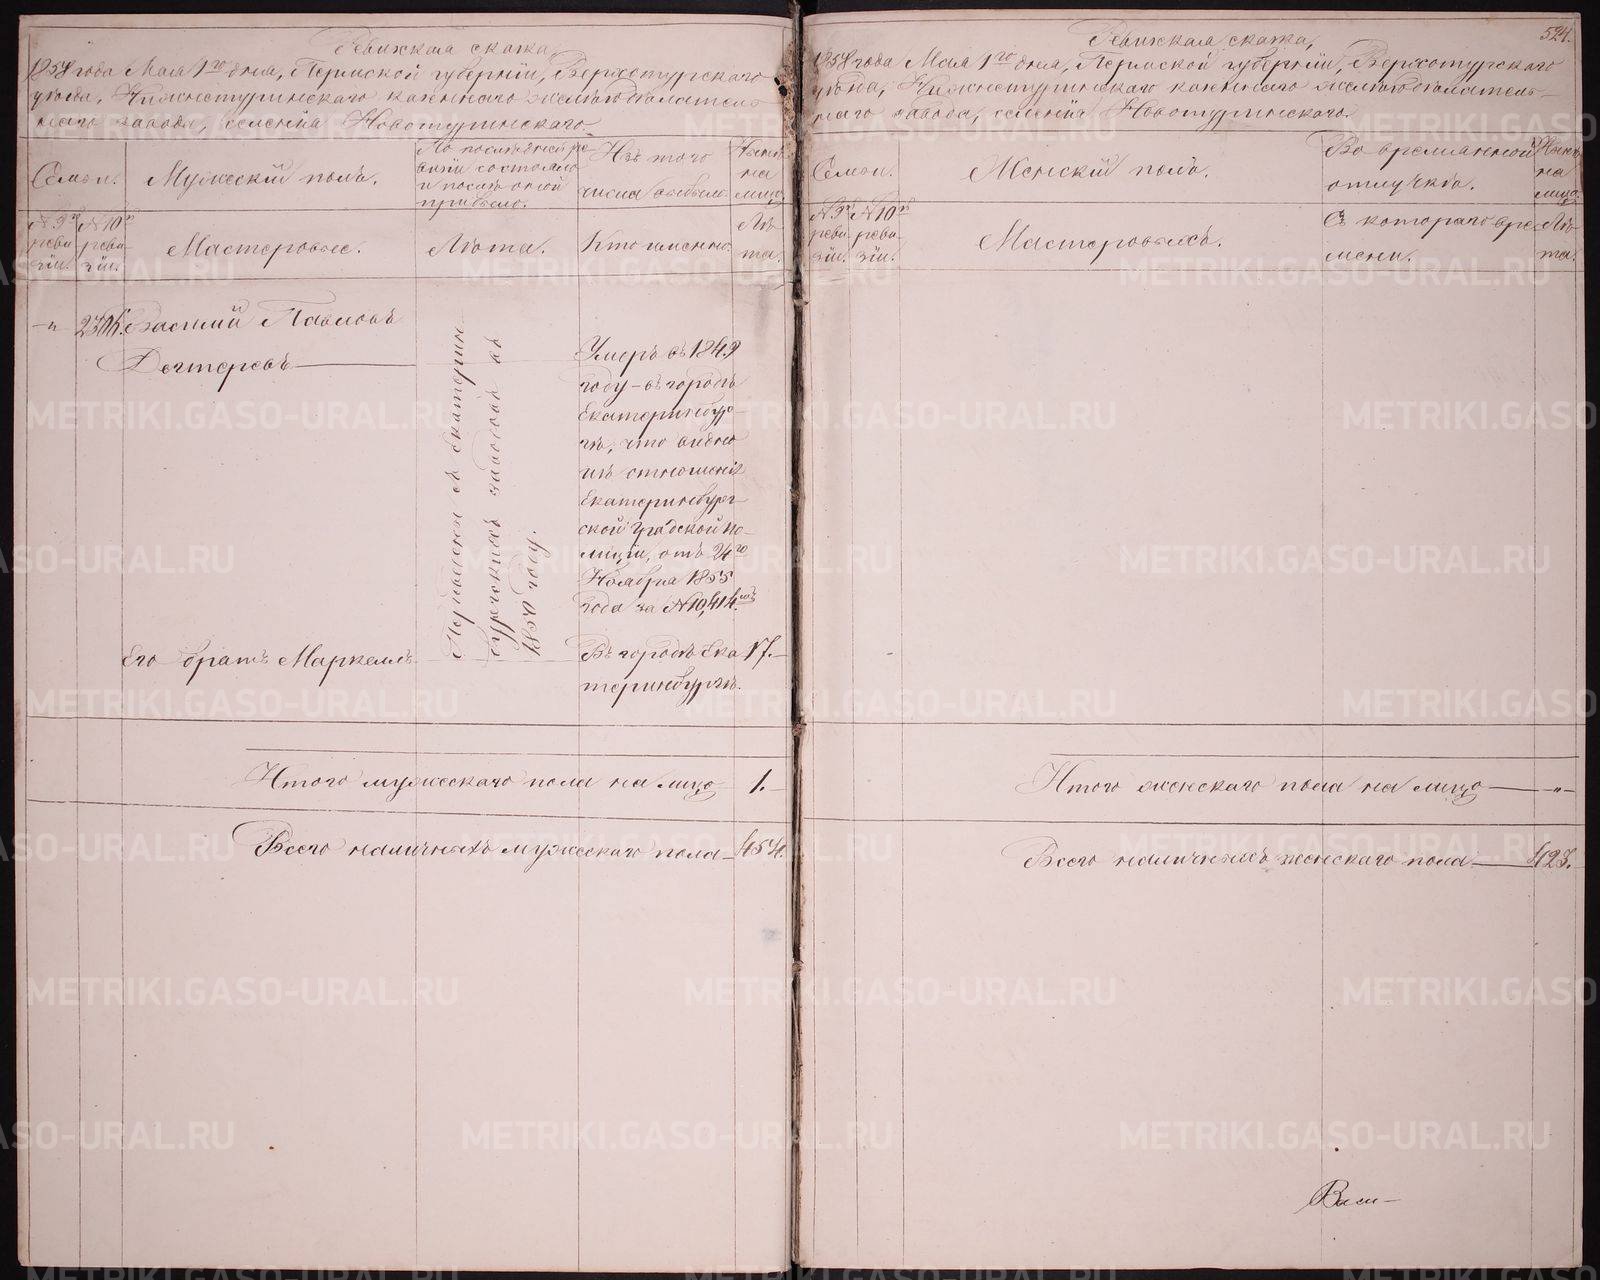 Ревижская сказка,
1858 года Мая 1го дня, Пермской губерніи, Верхотурского
уѣзда, Нижнетуринскаго казеннаго желѣзодѣлатель-
наго завода, селенія Новотуринскаго.
Семьи.
Мужескій полъ.
По послѣдней ре-
визіи состояло
и послѣ оной
прибыло.
Изъ того
числа выбыло.
Нынѣ
на
лицо.
№ 9й
реви-
зіи.
№ 10й
реви-
зіи.
Мастеровые.
Лѣта.
Кто именно.
Лѣ-
та.
-„ 230
Василій Павловъ
Дегтеревъ
Переведенъ съ Екатерин-
бургскихъ заводовъ въ
1850 году.
Умеръ въ 1849
году - въ городѣ
Екатеринбур-
гѣ, что видно
изъ отношенія
Екатеринбург-
ской Градской по-
лиціи, отъ 24го
Ноября 1855
года за № 10,414мъ
Его братъ Маркеллъ
Въ городѣ Ека-
теринбургѣ.
17.
Итого мужескаго пола на лицо 1.
Всего наличныхъ мужескаго пола 454.
524.
Ревижская сказка,
1858 года Мая 1го дня, Пермской губерніи, Верхотурского
уѣзда, Нижнетуринскаго казеннаго желѣзодѣлатель-
наго завода, селенія Новотуринскаго.
Семьи.
Женскій полъ.
Во временной
отлучкѣ.
Нынѣ
на
лицо.
№ 9й
реви-
зіи.
№ 10й
реви-
зіи.
Мастеровыхъ.
Съ котораго вре-
мени.
Лѣ-
та.
Итого женскаго пола на лицо -„-
Всего наличныхъ женскаго пола 423.
Васи-
METRIKI.GASO-URAL.RU